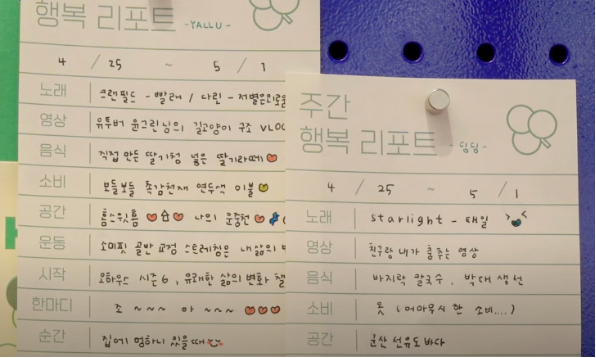 행복 리포트 -YALLU-
4 / 25 ~ 5 / 1
노래 그랜필드 - 빨래 / 다린 - 저별은외로움
영상 유튜버 윤그린님의 길고양이 구조 VLOG
음식 직접 만든 딸기청 넣은 딸기라떼
소비 보들보들 촉감천재 연두색 이불
공간 홈스윗홈 나의 운중천
운동 소미핏 골반 교정 스트레칭은 내 삶의
시작 오하우스 시즌6, 유래한 삶의 변화 챌
한마디 조 ~~~ 아 ~~~
순간 집에 멍하니 있을때
주간
행복 리포트 - 딩딩 -
4 / 25 ~ 5 / 1
노래 starlight - 태일
영상 친구랑 내가 춤추는 영상
음식 바지락 칼국수, 박대 생선
소비 옷 (어마무시한 소비....)
공간 군산 선유도 바다